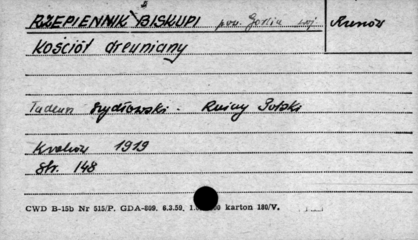 RZEPIENNIK BISKUPI pow. Gorlice woj. Rzeszów
Kościół drewniany
Tadeusz Szydłowski. Ruiny Polski
Kraków 1919
Str. 148
CWD B-15b Nr 515/P. GDA-809. 6.3.59, karton 180/V.